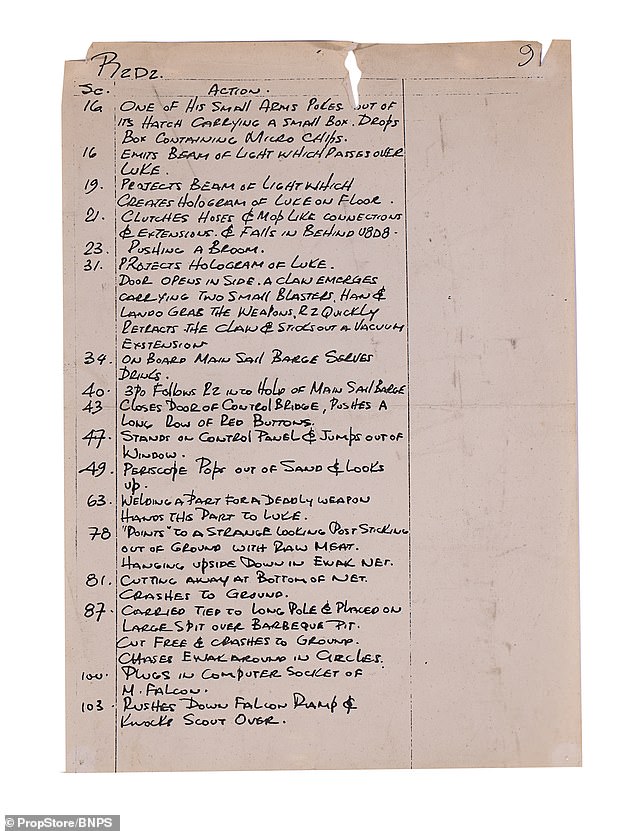 R2D2.
9
Sc. ACTION.
16 ONE OF HIS SMALL ARMS POKES OUT OF
ITS HATCH CARRYING A SMALL BOX. DROPS
BOX CONTAINING MICRO CHIPS.
16 EMITS BEAM OF LIGHT WHICH PASSES OVER
LUKE.
19. PROJECTS BEAM OF LIGHT WHICH
CREATES HOLOGRAM OF LUKE ON FLOOR.
21. CLUTCHES HOSES & MOP LIKE CONNECTIONS
& EXTENSIONS. & FALLS IN BEHIND U8D8.
23. PUSHING A BROOM.
31. PROJECTS HOLOGRAM OF LUKE.
DOOR OPENS IN SIDE. A CLAW EMERGES
CARRYING TWO SMALL BLASTERS. HAN &
LANDO GRAB THE WEAPONS, R2 QUICKLY
RETRACTS THE CLAW & STICKS OUT A VACUUM
EXSTENSION
34. ON BOARD MAIN SAIL BARGE SERVES
DRINKS.
40. 3PO FOLLOWS R2 INTO HOLD OF MAIN SAIL BARGE
43 CLOSES DOOR OF CONTROL BRIDGE, PUSHES A
LONG ROW OF RED BUTTONS.
47. STANDS ON CONTROL PANEL & JUMPS OUT OF
WINDOW.
49. PERISCOPE POPS OUT OF SAND & LOOKS
UP.
63. WELDING A PART FOR A DEADLY WEAPON
HANDS THIS PART TO LUKE.
78 "POINTS" TO A STRANGE LOOKING POST STICKING
OUT OF GROUND WITH RAW MEAT.
HANGING UPSIDE DOWN IN EWAK NET.
81. CUTTING AWAY AT BOTTOM OF NET.
CRASHES TO GROUND.
87. CARRIED TIED TO LONG POLE & PLACED ON
LARGE SPIT OVER BARBEQUE PIT.
CUT FREE & CRASHES TO GROUND.
CHASES EWAK AROUND IN CIRCLES.
100. PLUGS IN COMPUTER SOCKET OF
M. FALCON.
103. RUSHES DOWN FALCON RAMP &
KNOCKS SCOUT OVER.
© PropStore/BNPS